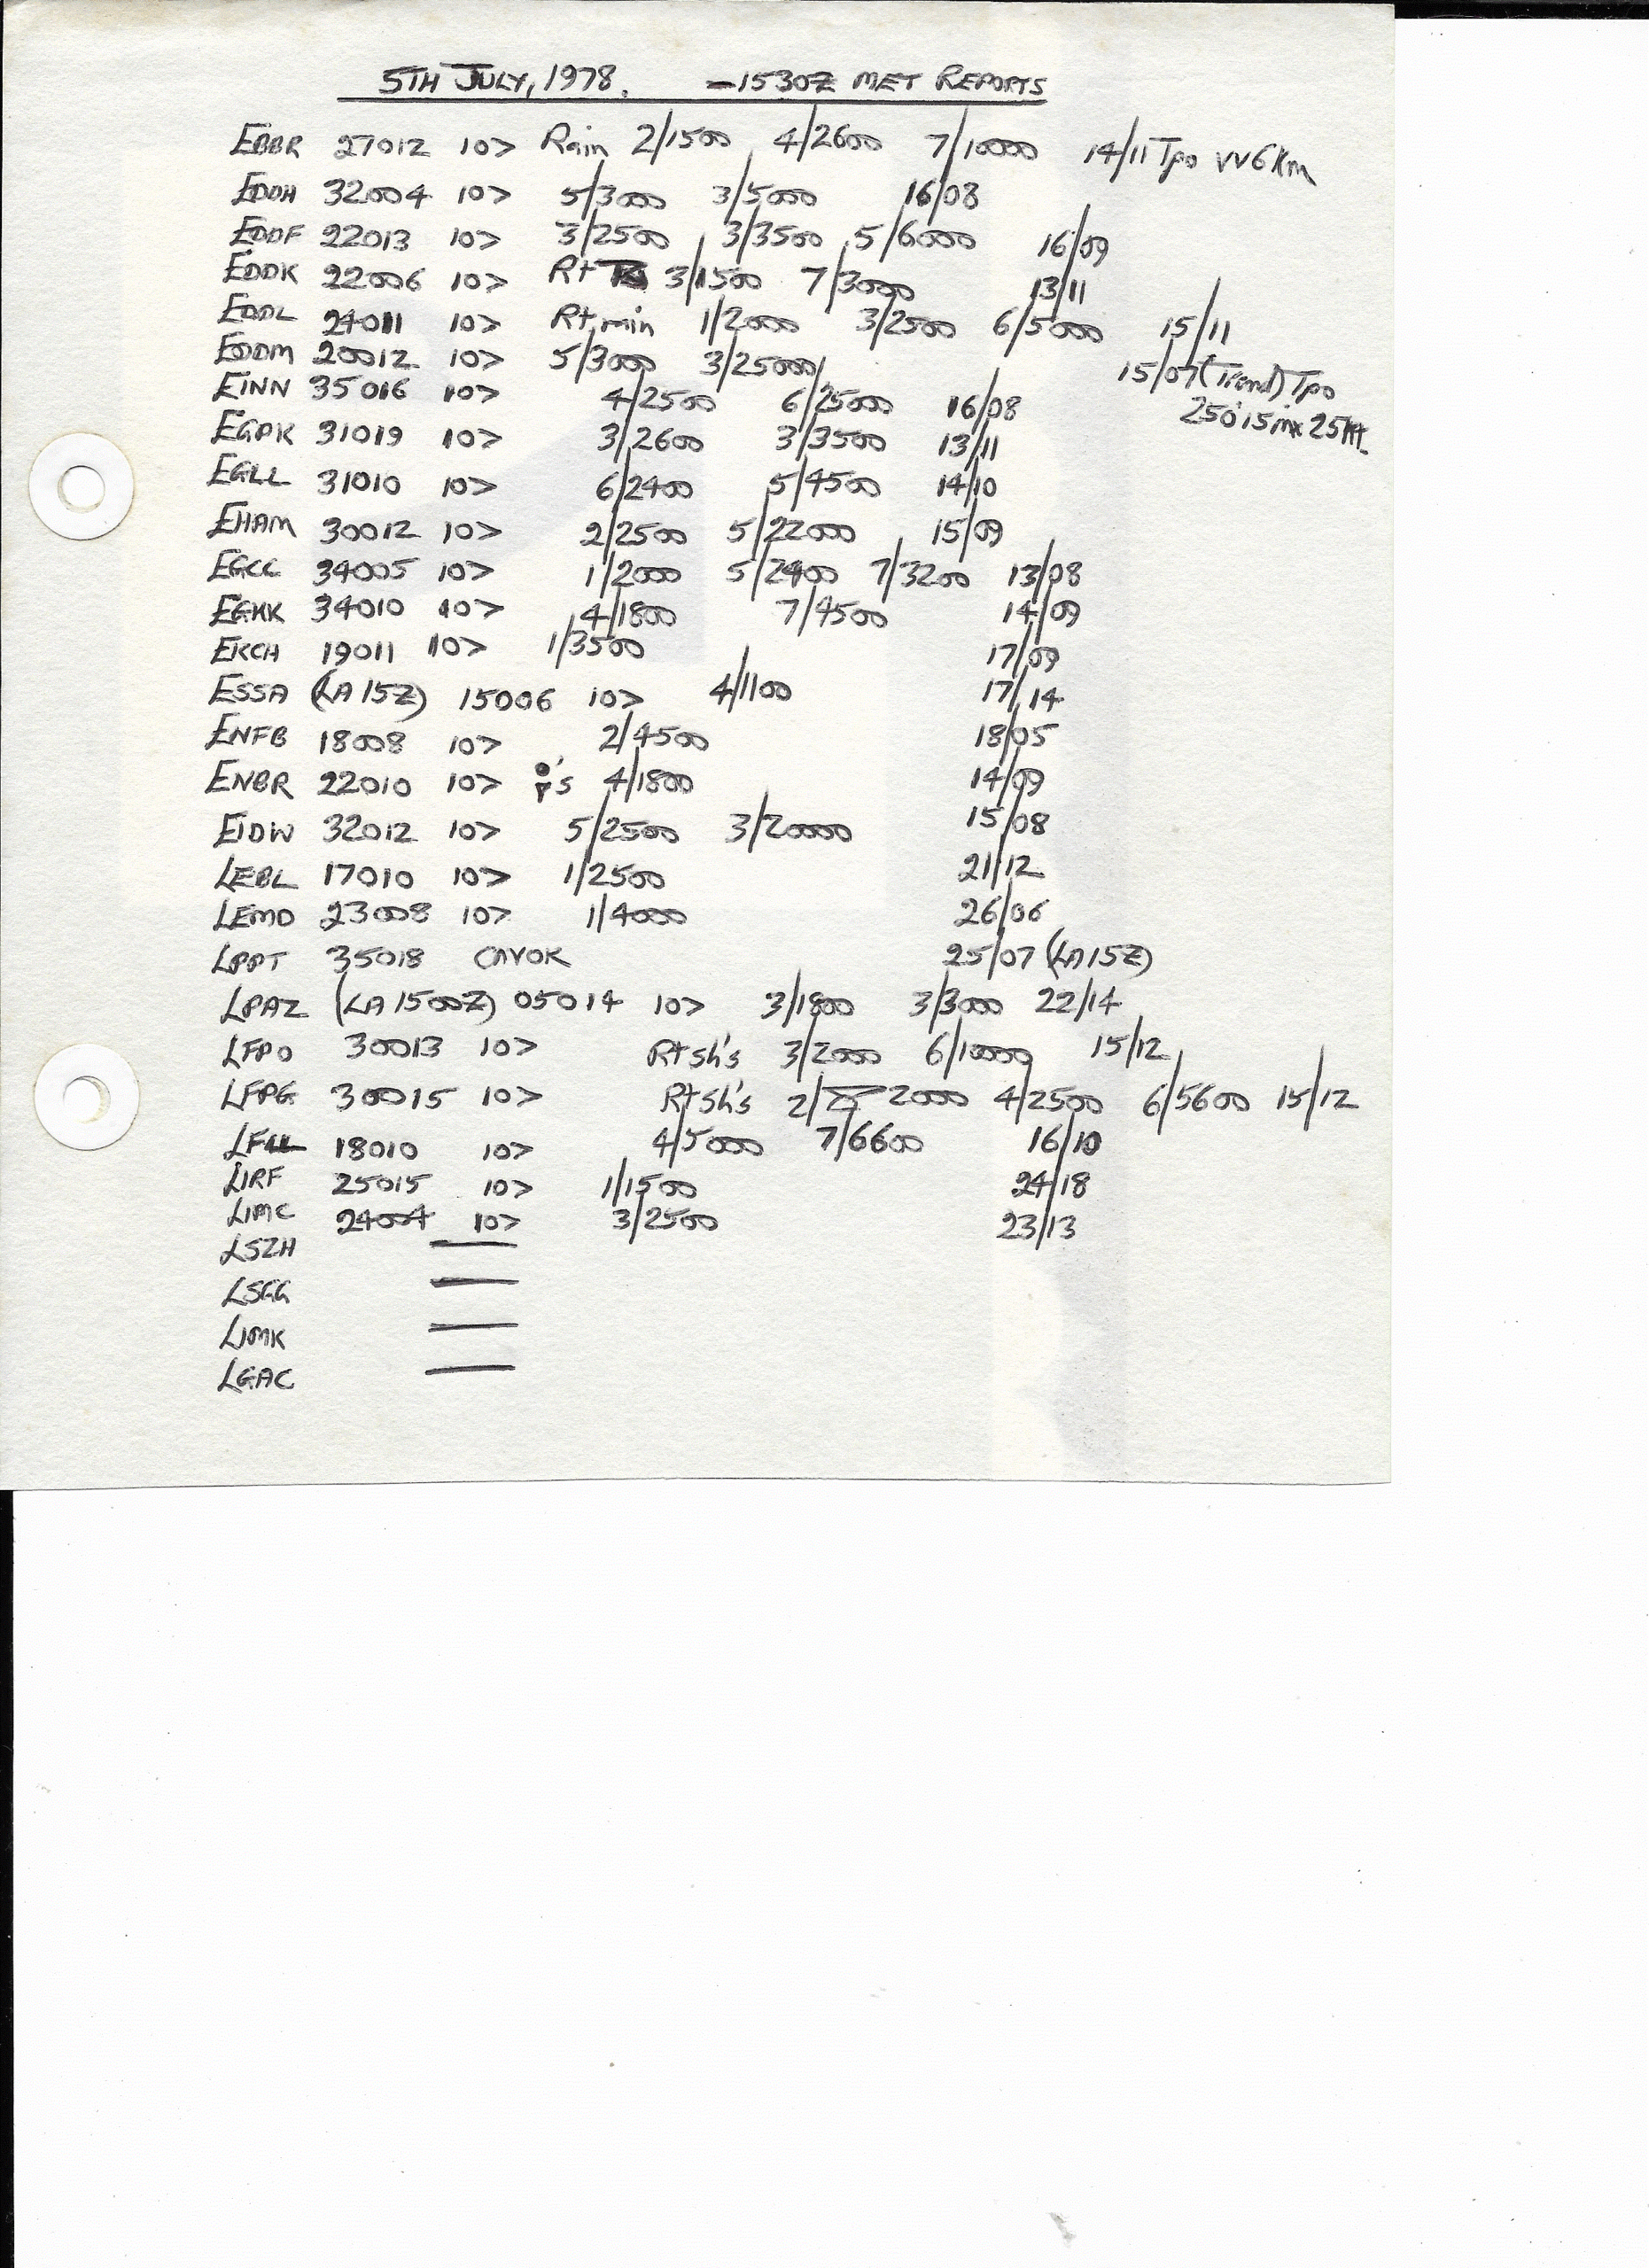 5TH JULY, 1978. - 1530Z MET REPORTS
EBBR 27012 10> Rain 2/1500 4/2600 7/10000 14/11 Tpo VV6Km
EDDH 32004 10> 5/3000 3/5000 16/08
EDDF 22013 10> 3/2500 3/3500 5/6000 16/09
EDDK 22006 10> R+ 3/1500 7/3000 13/11
EDDL 24011 10> R+ min 1/2000 3/2500 6/5000 15/11
EDDM 20012 10> 5/3000 3/25000 15/07 (Trend) Tpo
250°15 mx 25Kt.
EINN 35016 10> 4/2500 6/25000 16/08
EGPK 31019 10> 3/2600 3/3500 13/11
EGLL 31010 10> 6/2400 5/4500 14/10
EHAM 30012 10> 2/2500 5/22000 15/09
EGCC 34005 10> 1/2000 5/2400 7/3200 13/08
EGKK 34010 10> 4/1800 7/4500 14/09
EKCH 19011 10> 1/3500 17/09
ESSA (LA 15Z) 15006 10> 4/1100 17/14
ENFB 18008 10> 2/4500 18/05
ENBR 22010 10> 's 4/1800 14/09
EIDW 32012 10> 5/2500 3/20000 15/08
LEBL 17010 10> 1/2500 21/12
LEMD 23008 10> 1/4000 26/06
LPPT 35018 CAVOK 25/07 (LA 15Z)
LPAZ (LA 1500Z) 05014 10> 3/1800 3/3000 22/14
LFPO 30013 10> R+sh's 3/2000 6/10000 15/12
LFPG 30015 10> R+sh's 2/2000 4/2500 6/5600 15/12
LFLL 18010 10> 4/5000 7/6600 16/10
LIRF 25015 10> 1/1500 24/18
LIMC 24004 10> 3/2500 23/13
LSZH —
LSGG —
LIMK —
LGAC —